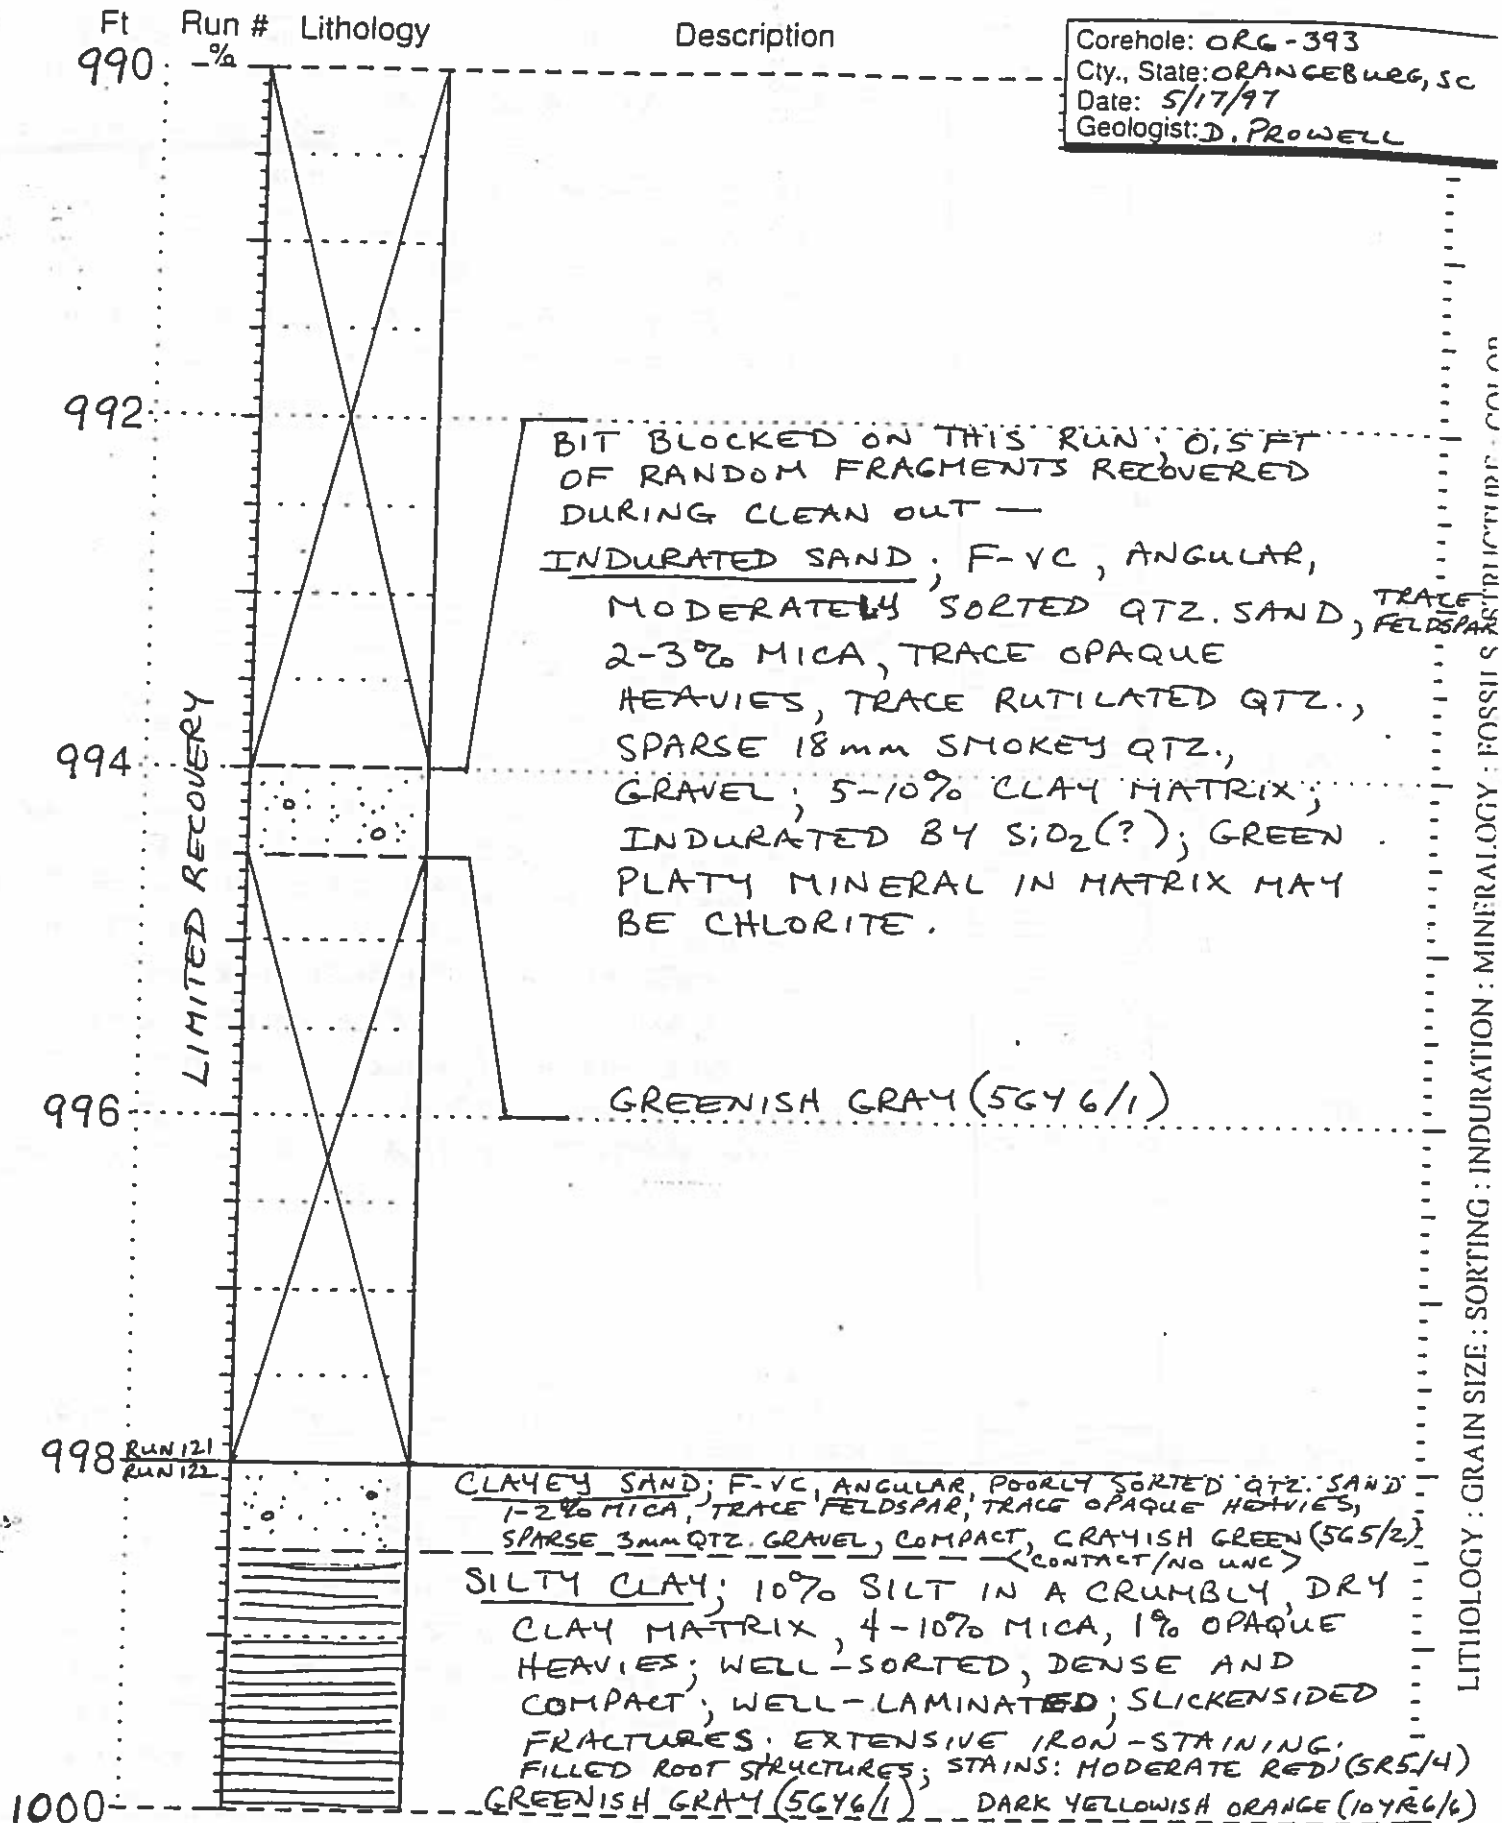 Ft Run # Lithology Description
%
Corehole: ORG-393
Cty., State: ORANGEBURG, SC
Date: 5/17/97
Geologist: D. PROWELL
990
992
BIT BLOCKED ON THIS RUN; 0.5 FT
OF RANDOM FRAGMENTS RECOVERED
DURING CLEAN OUT —
INDURATED SAND; F-VC, ANGULAR,
MODERATELY SORTED QTZ. SAND, TRACE FELDSPAR
2-3% MICA, TRACE OPAQUE
HEAVIES, TRACE RUTILATED QTZ.,
994
SPARSE 18 mm SMOKEY QTZ.,
GRAVEL; 5-10% CLAY MATRIX;
INDURATED BY SiO2(?); GREEN
PLATY MINERAL IN MATRIX MAY
BE CHLORITE.
LIMITED RECOVERY
996
GREENISH GRAY (5GY 6/1)
998
RUN 121
RUN 122
CLAYEY SAND; F-VC, ANGULAR, POORLY SORTED QTZ. SAND
1-2% MICA, TRACE FELDSPAR, TRACE OPAQUE HEAVIES,
SPARSE 3mm QTZ. GRAVEL, COMPACT, GRAYISH GREEN (5G5/2)
<CONTACT/NO UNC>
SILTY CLAY; 10% SILT IN A CRUMBLY, DRY
CLAY MATRIX, 4-10% MICA, 1% OPAQUE
HEAVIES; WELL-SORTED, DENSE AND
COMPACT; WELL-LAMINATED; SLICKENSIDED
FRACTURES. EXTENSIVE IRON-STAINING.
FILLED ROOT STRUCTURES; STAINS: MODERATE RED (5R5/4)
1000
GREENISH GRAY (5GY6/1) DARK YELLOWISH ORANGE (10YR6/6)
LITHOLOGY : GRAIN SIZE : SORTING : INDURATION : MINERALOGY : FOSSILS : STRUCTURE : COLOR